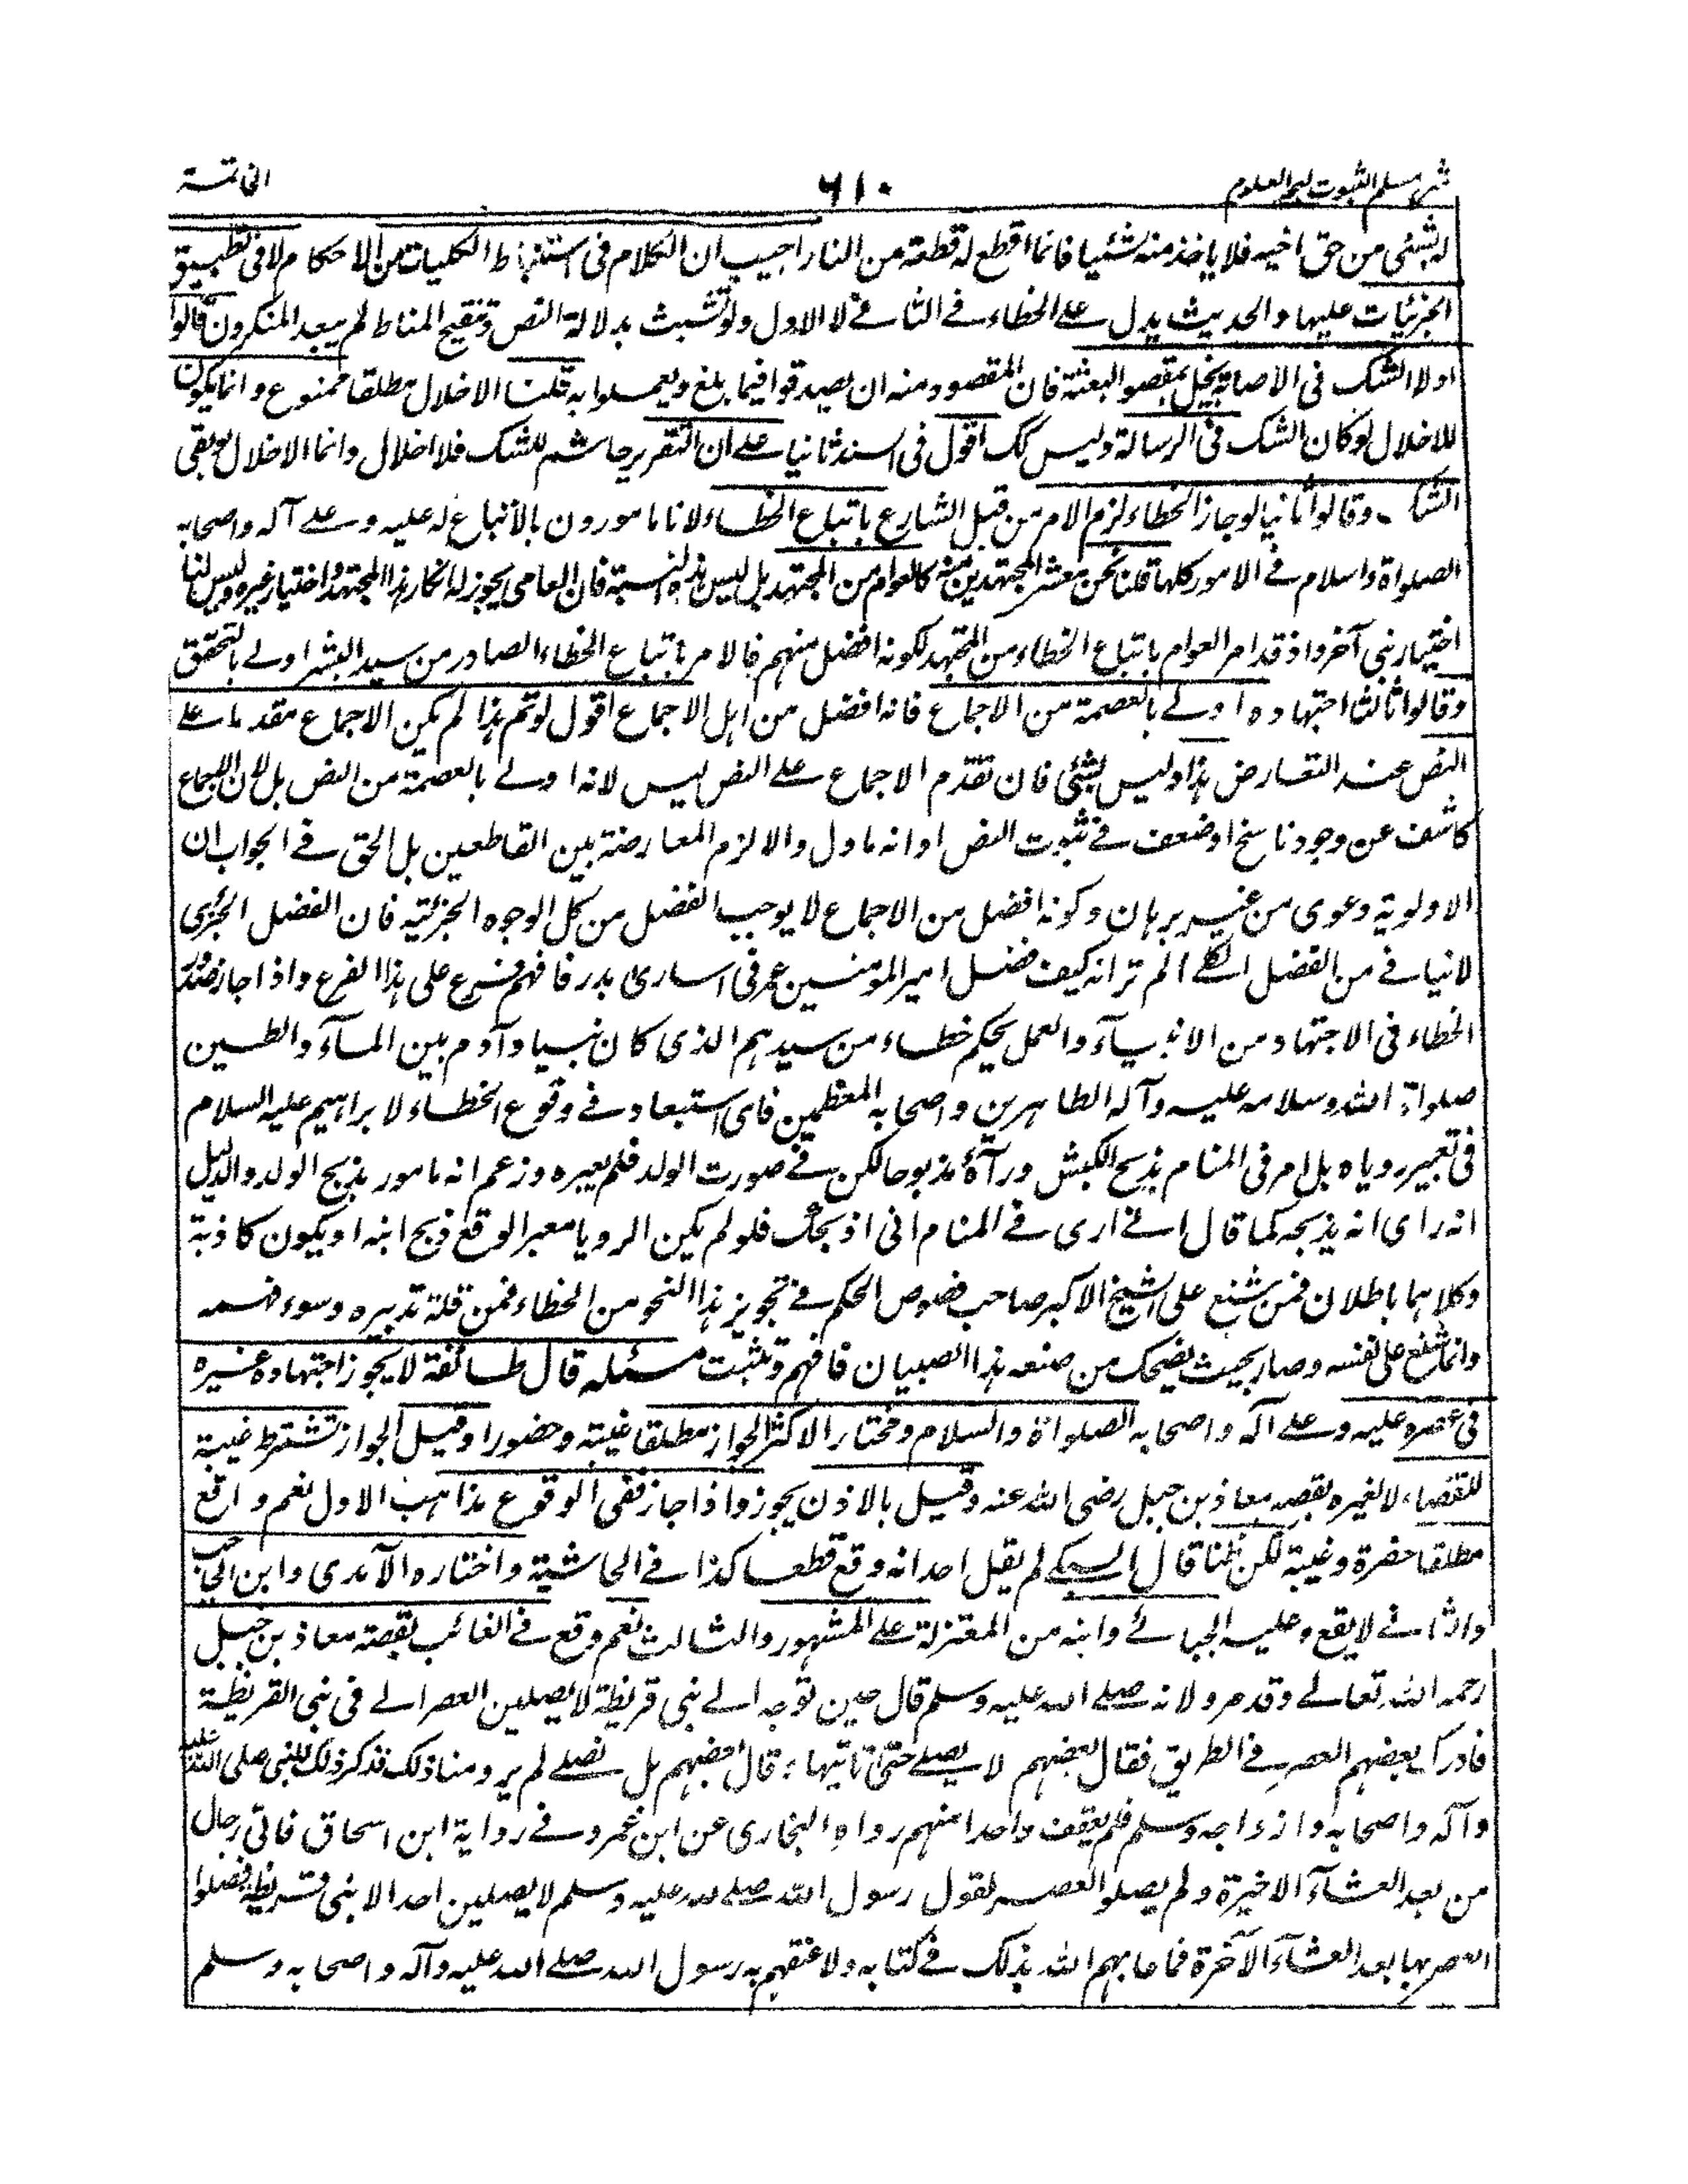 شرح مسلم الثبوت لبحر العلوم
٦١٠
الخاتمة
له بشئى من حق اخيه فلا ياخذ منه شئيا فانما اقطع له قطعة من النار اجيب ان الكلام فى استنباط الكليات من الاحكام لا فى تطبيق
الجزئيات عليها والحديث يدل على الخطاء فى الثانى لا الاول ولو تشبث بدلالة النص وتنقيح المناط لم يبعد المنكرون قالوا
اولا الشك فى الاصابة يخل بمقصو البعثة فان المقصود منه ان يصدقوا فيما بلغ ويعملوا به قلنا الاخلال مطلقا ممنوع وانما يكون
للاخلال لو كان الشك فى الرسالة وليس كك اقول فى السند ثانيا على ان التقرير حاسم للشك فلا اخلال وانما الاخلال لو بقى
الشك وقالوا ثانيا لو جاز الخطاء لزم الامر من قبل الشارع باتباع الخطاء لانا مامورون بالاتباع له عليه وعلى آله واصحابه
الصلواة واسلام فى الامور كلها قلنا نحن معشر المجتهدين منه كالعوام من المجتهد بل ليس هذه النسبة فان العامى يجوز له انكار هذا المجتهد واختيار غيره وليس لنا
اختيار نبى آخر واذ قد امر العوام باتباع الخطاء من المجتهد لكونه افضل منهم فالامر باتباع الخطاء الصادر من سيد البشر اولى بالتحقق
وقالوا ثالثا اجتهاده اولى بالعصمة من الاجماع فانه افضل من اهل الاجماع اقول لو تم هذا لم يكن الاجماع مقدما على
النص عند التعارض هذا وليس بشئى فان تقدم الاجماع على النص ليس لانه اولى بالعصمة من النص بل لان الاجماع
كاشف عن وجود ناسخ او ضعف فى ثبوت النص او انه ماول والا لزم المعارضة بين القاطعين بل الحق فى الجواب ان
الاولوية دعوى من غير برهان وكونه افضل من الاجماع لا يوجب الفضل من كل الوجوه الجزئية فان الفضل الجزئى
لا ينافى من الفضل الكلى الم تر انه كيف فضل امير المومنين عمر فى اسارى بدر فافهم فرع على هذا الفرع واذا جاز صدور
الخطاء فى الاجتهاد من الانبيآء والعمل بحكم خطاء من سيدهم الذى كان نبيا وآدم بين المآء والطين
صلواة الله وسلامه عليه وآله الطاهرين واصحابه المعظمين فاى استبعاد فى وقوع الخطاء لابراهيم عليه السلام
فى تعبير روياه بل امر فى المنام بذبح الكبش ورآه مذبوحا لكن فى صورت الولد فلم يعبره وزعم انه مامور بذبح الولد والدليل
انه راى انه يذبحه كما قال انى ارى فى المنام انى اذبحك فلو لم يكن الرويا معبرا لوقع ذبح ابنه او يكون كاذبة
وكلاهما باطلان فمن شنع على الشيخ الاكبر صاحب فصوص الحكم فى تجويز هذا النحو من الخطاء فمن قلة تدبيره وسوء فهمه
وانما شنع على نفسه وصار بحيث يضحك من صنعه هذا الصبيان فافهم وتثبت مسئله قال طائفة لا يجوز اجتهاده غيره
فى عصره عليه وعلى آله واصحابه الصلواة والسلام ومختار الاكثر الجواز مطلقا غيبته وحضورا وقيل الجواز تشترط غيبة
للقضاء لا لغيره بقصه معاذ بن جبل رضى الله عنه وقيل بالاذن يجوز واذا جاز ففى الوقوع مذاهب الاول نعم وارقع
مطلقا حضرة وغيبة لكن ظنا قال السبكى لم يقل احد انه وقع قطعا كذا فى الحاشية واختاره الآمدى وابن الحاجب
والثانى لا يقع وعليه الجبائى وابنه من المعتزلة على المشهور والثالث نعم وقع فى الغائب بقصته معاذ بن جبل
رحمه الله تعالى وقد مر ولانه صلى الله عليه وسلم قال حين توجه الى بنى قريظة لا يصلين العصر الى فى بنى القريظة
فادرك بعضهم العصر فى الطريق فقال بعضهم لا يصلى حتى تاتيها وقال بعضهم بل نصلى لم يرد منا ذلك فذكر ذلك للنبى صلى الله عليه
وآله واصحابه وازواجه وسلم فلم يعنف واحدا منهم رواه البخارى عن ابن عمر وفى رواية ابن اسحاق فاتى رجال
من بعد العشآء الاخيرة ولم يصلو العصر لقول رسول الله صلى الله عليه وسلم لا يصلين احد الا بنى قريظة فصلوا
العصر بها بعد العشآء الآخرة فما عابهم الله بذلك فى كتابه ولا عنفهم به رسول الله صلى الله عليه وآله واصحابه وسلم